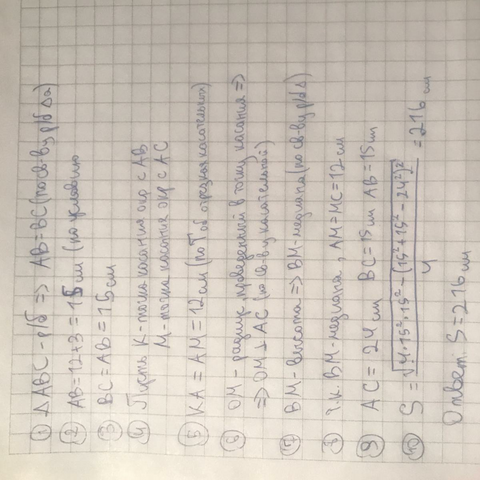 ① ΔABC - р/б => AB=BC (по св-ву р/б Δа)
② AB=12+3=15 см (по условию)
③ BC=AB=15 см
④ Пусть K-точка касания окр с AB
M-точка касания окр с AC
⑤ KA=AM=12 см (по T об отрезках касательных)
⑥ OM-радиус проведенный в точку касания =>
=> OM⊥AC (по св-ву касательной)
⑦ BM-высота => BM-медиана (по св-ву р/б Δ)
⑧ Т.к. BM-медиана, AM=MC=12 см
⑨ AC=24 см BC=15 см AB=15 см
⑩ S = √(4·15²·15² - (15²+15²-24²)²) / 4 = 216 см
Ответ. S=216 см